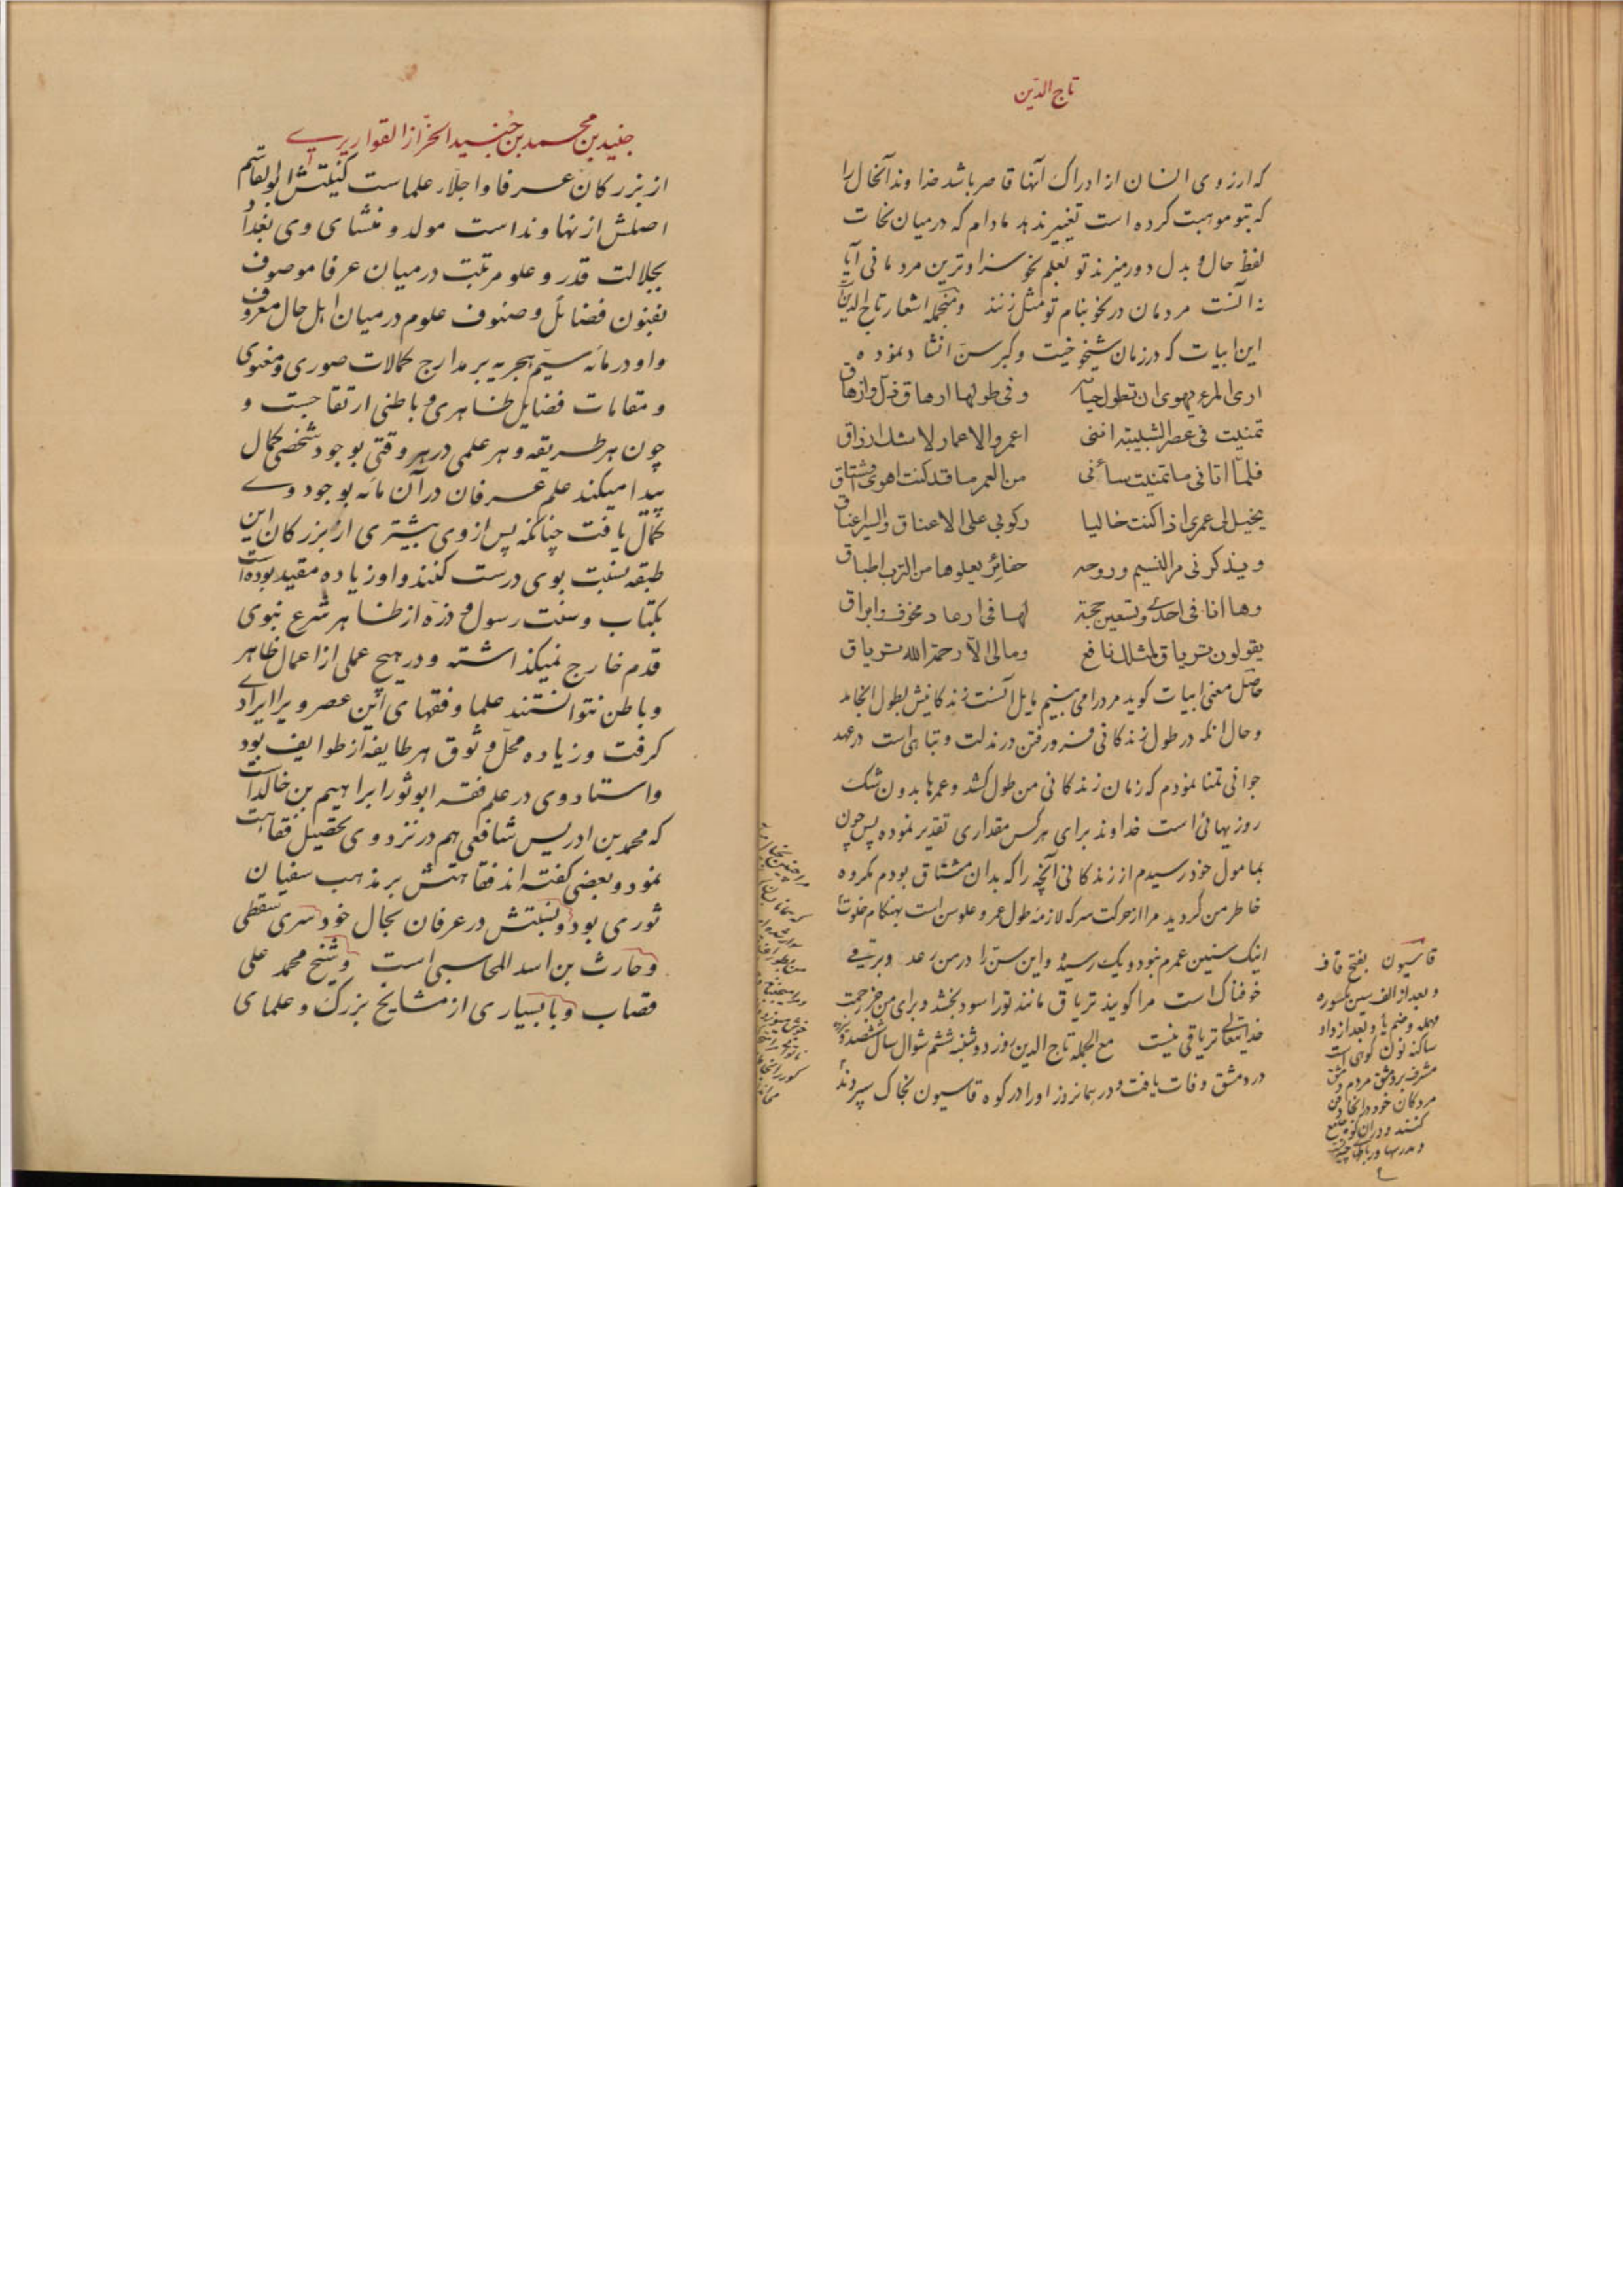 تاج الدین
که ارزوی انسان از ادراک آنها قاصر باشد خداوند آنحال را
که بتو موهبت کرده است تغییر ندهد مادام که درمیان نحات
لفظ حال و بدل دورمیزند تو بعلم نحو سزاوترین مردمانی آیا
نه آنست مردمان در نحو بنام تو مثل زنند ومنجمله اشعار تاج الدین
این ابیات که در زمان شیخوخیت وکبر سن انشاد نموده
اری المرء یهوی ان تطول حیاته وفی طولها ارهاق ذل وازهاق
تمنیت فی عصر الشبیبة اننی اعمر والاعمار لا شک ارزاق
فلما اتانی ما تمنیت ساءنی من العمر ما قد کنت اهوی واشتاق
یخیل لی عمری اذا کنت خالیا رکوبی علی الاعناق والسیر اعناق
ویذکرنی مر النسیم وروحه حفائر یعلوها من الترب اطباق
وها انا فی احدی وتسعین حجة لها فی ارعاد مخوف وابراق
یقولون تریاق لمثلک نافع ومالی الا رحمة الله تریاق
حاصل معنی ابیات کوید مرد را می بینم مایل آنست زندکانیش بطول انجامد
وحال انکه در طول زندکانی فرورفتن در مذلت و تباهی است در عهد
جوانی تمنا نمودم که زمان زندکانی من طول کشد و عمرها بدون شک
روزیهائی است خداوند برای هر کس مقداری تقدیر نموده پس چون
بمامول خود رسیدم از زندکانی آنچه را که بدان مشتاق بودم مکروه
خاطر من گردید مرا از حرکت سر که لازمهٔ طول عمر و علو سن است بهنکام خلوت
اینک سنین عمرم نبود و یک رسیده و این سن را در من رعد و برقی
خوفناک است مرا کویند تریاق مانند تو را سود بخشد و برای من جز رحمت
خدایتعالی تریاقی نیست مع الجمله تاج الدین روز دوشنبه ششم شوال سال ششصد و سیزده
در دمشق وفات یافت و در همانروز او را در کوه قاسیون بخاک سپردند
قاسیون بفتح قاف
و بعد از الف سین مکسوره
مهمله وضم یا و بعد از واو
ساکنه نون کوهی است
مشرف بر دمشق مردم دمشق
مردکان خود در انجا دفن
کنند و در آن کوه جامع
و مدرسها و رباطها
جنید بن محمد بن جنید الخزاز القواریری
از بزرکان عرفا و اجلاء علماست کنیتش ابوالقاسم
اصلش از نهاوند است مولد و منشای وی بغداد
بجلالت قدر و علو مرتبت درمیان عرفا موصوف
بفنون فضائل و صنوف علوم درمیان اهل حال معروف
و او در مائه سیم هجریه بر مدارج کمالات صوری و معنوی
و مقامات فضایل ظاهری و باطنی ارتقا جست و
چون هر طریقه و هر علمی در هر وقتی بوجود شخصی کمال
پیدا میکند علم عرفان در آن مائه بوجود وی
کمال یافت چنانکه پس از وی بیشتری از بزرکان این
طبقه نسبت بوی درست کنند و او زیاده مقید بوده است
بکتاب و سنت رسول و ذره از ظاهر شرع نبوی
قدم خارج نمیکذاشته و در هیچ عملی از اعمال ظاهر
و باطن نتوانستند علما و فقهای آئین عصر ویرا ایرادی
کرفت و زیاده محل وثوق هر طایفه از طوایف بود
و استاد وی در علم فقه ابوثور ابراهیم بن خالد است
که محمد بن ادریس شافعی هم در نزد وی تحصیل فقاهت
نمود و بعضی کفته اند فقاهتش بر مذهب سفیان
ثوری بود و نسبتش در عرفان بخال خود سری سقطی
وحارث بن اسد المحاسبی است وشیخ محمد علی
قصاب وبا بسیاری از مشایخ بزرک و علمای